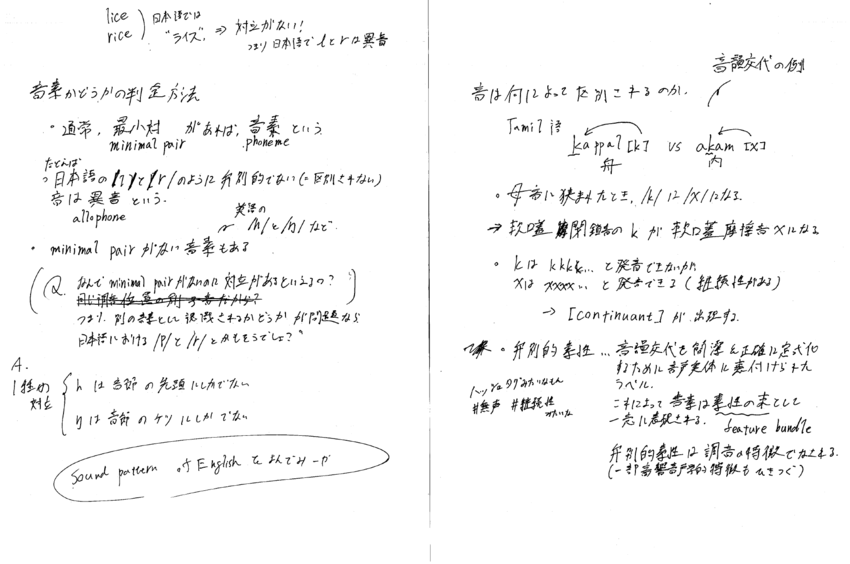 lice
rice
日本語では
"ライズ" ⇒ 対立がない!
つまり日本語でlとrは異音
音素かどうかの判定方法
・通常、最小対 があれば、音素 という
minimal pair
phoneme
たとえば
日本語の /l/と/r/のように弁別的でない(=区別されない)
音は異音という。
allophone
英語の
/h/と/ŋ/など
・minimal pairがない音素もある
Q. なんでminimal pairがないのに対立があるといえるの?
つまり、別の音素として認識されるかどうかが問題なら
日本語における/l/と/r/とかもそうでしょ?
A.
対立
hは音節の先頭にしかでない
ŋは音節のケツにしかでない
Sound pattern of Englishをよんでみーや
音韻交代の例
音は何によって区別されるのか.
Tamil語
kappal [k] vs akam [x]
舟
内
・母音に挟まれたとき、/k/は/x/になる
→ 軟口蓋閉鎖音のkが軟口蓋摩擦音xになる
・kはkkkk... と発音できないが、
xはxxxx... と発音できる(継続性がある)
→ [continuant]が出現する.
・弁別的素性…音韻交代を簡潔&正確に定式化
するために音声実体に裏付けられた
ラベル.
ハッシュタグみたいなもん
#無声 #継続性
みたいな
これによって音素は素性の束として
一意に表現される.
feature bundle
弁別的素性は調音の特徴でなされる.
(一部音響音声学的特徴もひきつぐ)